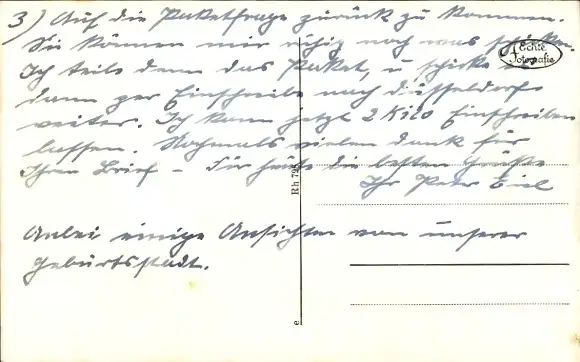 3) Auf die Paketfrage zurück zu kommen.
Sie können mir ruhig noch was schicken.
Ich teile dann das Paket, u schicke
dann per Einschreibe nach Düsseldorf
weiter. Ich kann jetzt 2 Kilo Einschreiben
lassen. Nochmals vielen dank für
Ihren Brief – Für heute die besten Grüße
Ihr Peter Eiel
Anbei einige Ansichten von unserer
Geburtsstadt.
Echte
Fotografie
Rh 79
e